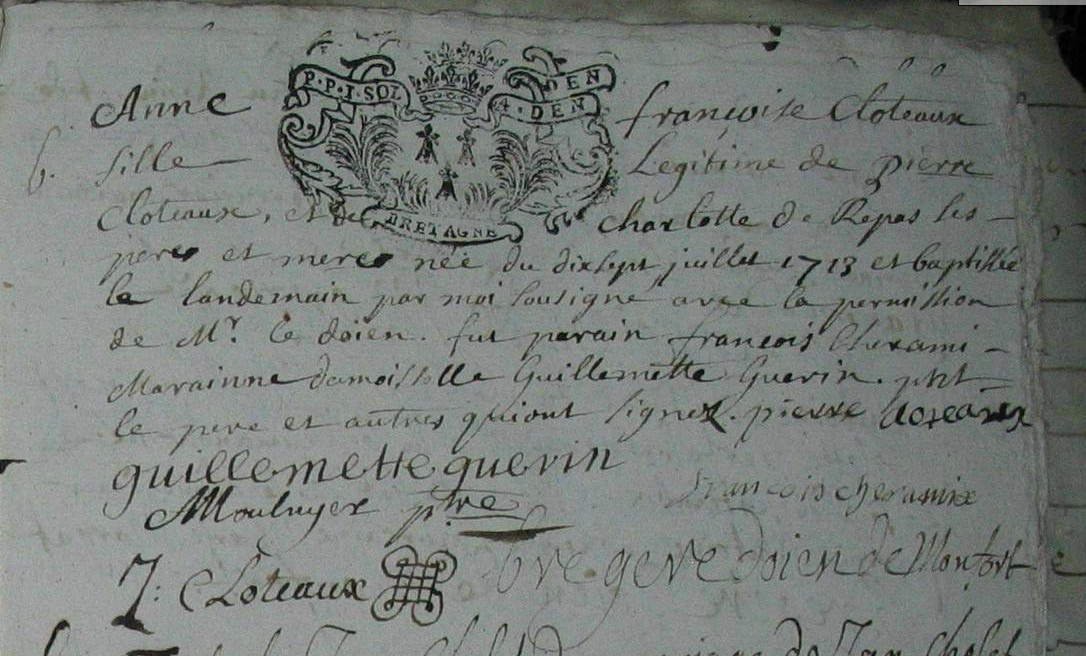 P.P.I.SOL DEN
4.DEN
Anne françoise Cloteaux
b. fille Legitime de pierre
Cloteaux, et de charlotte de Repas les
BRETAGNE
peres et meres née du dixsept juillet 1713 et baptisée
le landemain par moi sousigné avec la permission
de Mr. le doien. fut parain francois Cherami
Marainne damoisselle Guillemette Guerin. pnt
le pere et autres qui ont signez. pierre
guillemette guerin
francois cheramix
ptre
gere doien de Monfort
J: Cloteaux